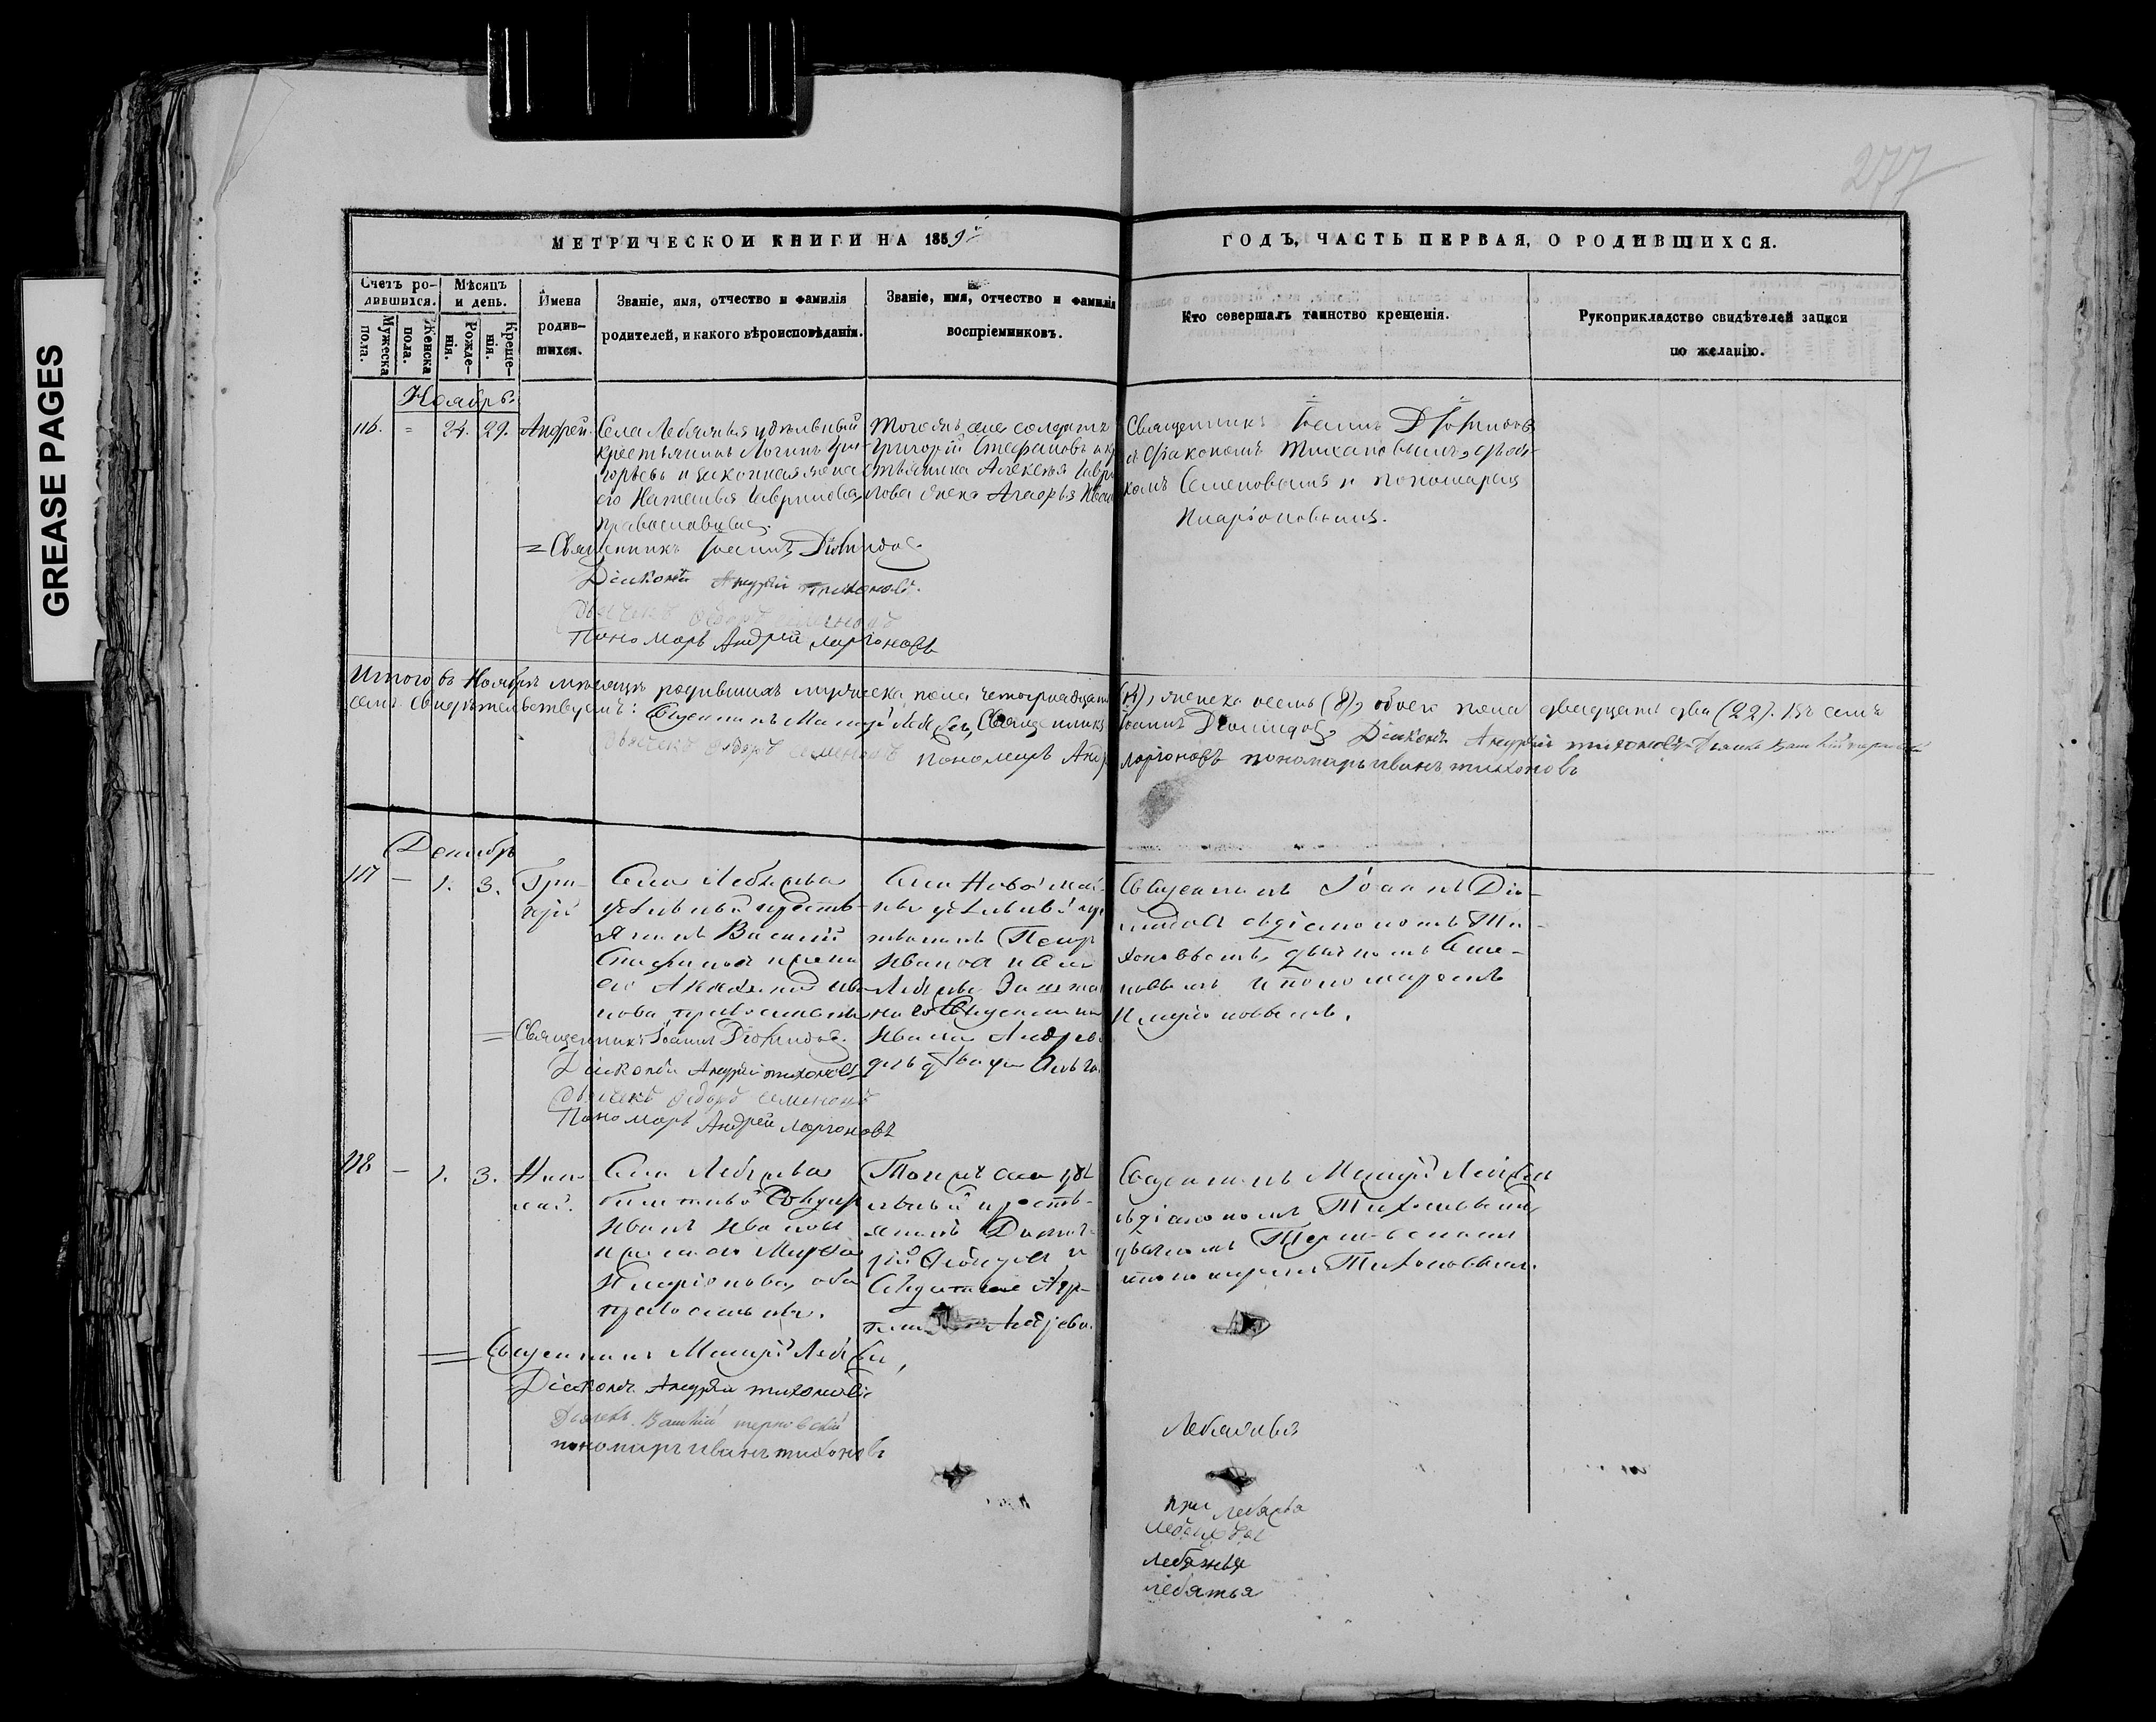 GREASE PAGES
277
МЕТРИЧЕСКОЙ КНИГИ НА 1859й
ГОДЪ, ЧАСТЬ ПЕРВАЯ, О РОДИВШИХСЯ.
Счетъ ро-
дившихся.
Мужеска
пола.
Женска
пола.
Мѣсяцъ
и день.
Рожде-
нія.
Креще-
нія.
Имена
родив-
шихся.
Званіе, имя, отчество и фамилія
родителей, и какого вѣроисповѣданія.
Званіе, имя, отчество и фамилія
воспріемниковъ.
Кто совершалъ таинство крещенія.
Рукоприкладство свидѣтелей записи
по желанію.
Ноябрь
116. = 24. 29. Андрей.
Села Лебяжья удѣльный
крестьянинъ Логинъ Гри-
горьевъ и законная жена
его Наталья Гаврилова,
православные.
Тогожъ села солдатъ
Григорій Стефановъ и кр
стьянина Алексѣя Гаври
лова жена Агафья Иван
Священникъ Іоаннъ Діомидовъ
съ діакономъ Тихоновымъ, дьяч-
комъ Семеновымъ и пономаремъ
Иларіоновымъ.
= Священникъ Іоаннъ Діомидовъ
Діаконъ Андрей Тихоновъ.
Дьячекъ Ѳедоръ Семеновъ
Пономарь Андрей Ларіоновъ
Итого въ Ноябрѣ мѣсяцѣ родившихъ мужеска пола четырнадцать (14), женска осемь (8), обоего пола двадцать два (22). Въ семъ
семъ свидѣтельствуемъ: Священникъ Лебедевъ, Священникъ Іоаннъ Діомидовъ, Діаконъ Андрей Тихоновъ Дьячекъ
Дьячекъ Ѳедоръ Семеновъ Пономарь Андр Ларіоновъ пономарь Иванъ Тихоновъ
Декабрь
117 — 1. 3. Гри-
горій
Села Лебяжья
удѣльный кресть-
янинъ Василій
Стефановъ и жена
его Ива-
нова, православн
Села Новой Май-
ны удѣльный кр
стьянинъ Петръ
Ивановъ и села
Лебяжья
Священника
Ивана Андрее
дочь дѣвица Ольга.
Священникъ Іоаннъ Діо-
мидовъ съ діакономъ Ти-
хоновымъ, дьячкомъ Семе-
новымъ и пономаремъ
Иларіоновымъ.
= Священникъ Іоаннъ Діомидовъ.
Діаконъ Андрей Тихоновъ
Дьячекъ Ѳедоръ Семеновъ
Пономарь Андрей Ларіоновъ
118 — 1. 3. Нико-
лай.
Села Лебяжья
билетный солдатъ
Иванъ Ивановъ
и жена его Марѳа
Иларіонова, оба
православные.
Тогожъ села удѣ
льный кресть-
янинъ Димит-
рій Ѳедоровъ и
Андреева.
Священникъ Лебедевъ
съ діакономъ Тихоновымъ,
дьячкомъ Терновскимъ
и пономаремъ Тихоновымъ.
= Священникъ Лебедевъ,
Діаконъ Андрей Тихоновъ
Дьячекъ Терновскій
пономарь Иванъ Тихоновъ
Лебяжья
при Лебяжья
Лебяжья
Лебяжья